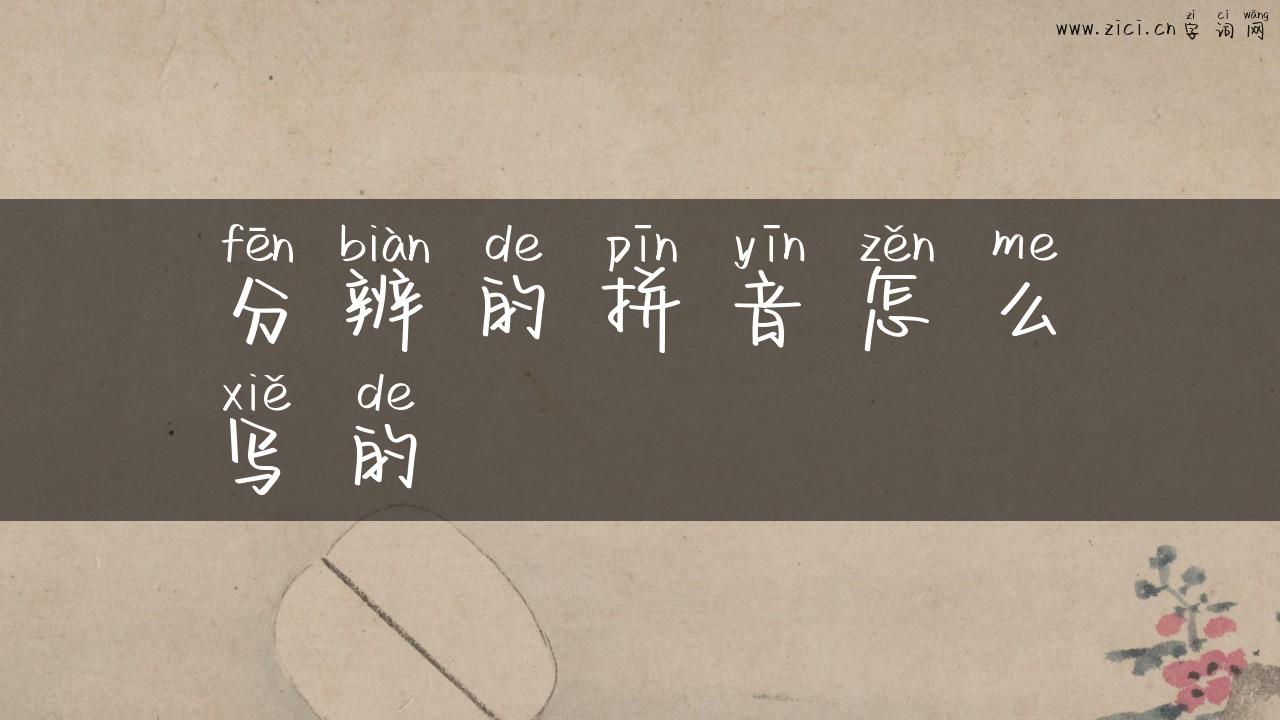 zì cí wǎng
www.zici.cn字词网
fēn biàn de pīn yīn zěn me
分辨的拼音怎么
xiě de
写的